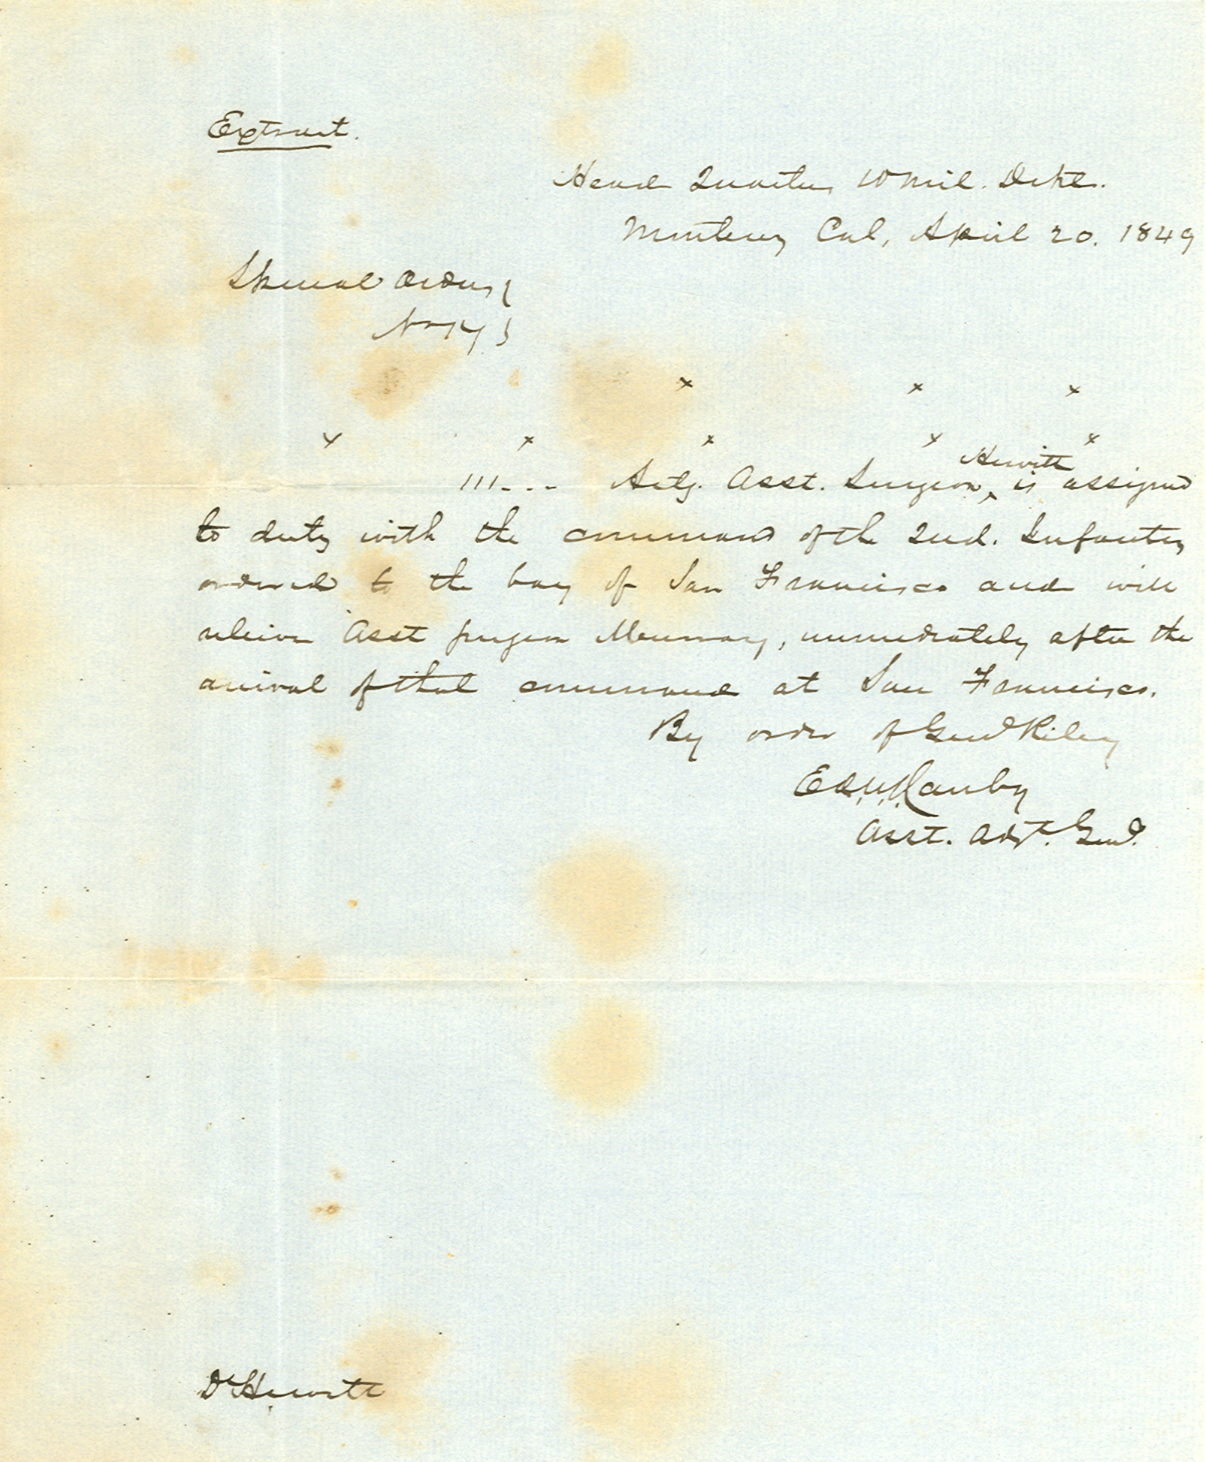 Extract.
Head Quarters 10 Mil. Dept.
Monterey Cal, April 20. 1849
Special Orders }
No 17 }
x x x
x x x x x
Hewitt
III... Actg. Asst. Surgeon ‸ is assigned
to duty with the command of the 2nd. Infantry
ordered to the bay of San Francisco and will
relieve Asst Surgeon Murray, immediately after the
arrival of that command at San Francisco.
By order of Genl Riley
Ed. R. S. Canby
Asst. Adjt. Genl.
Dr Hewitt